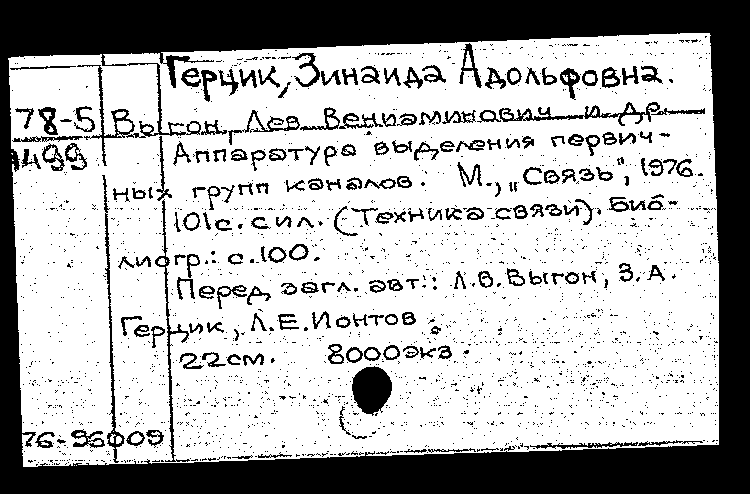 Герцик, Зинаида Адольфовна.
78-5 Выгон, Лев Вениаминович и др.
1499 Аппаратура выделения первич-
ных групп каналов. М., „Связь", 1976.
101с. с ил. (Техника связи). Биб-
лиогр.: с.100.
Перед загл. авт.: Л.В.Выгон, З.А.
Герцик, Л.Е.Ионтов.
22см. 8000экз.
76-96009